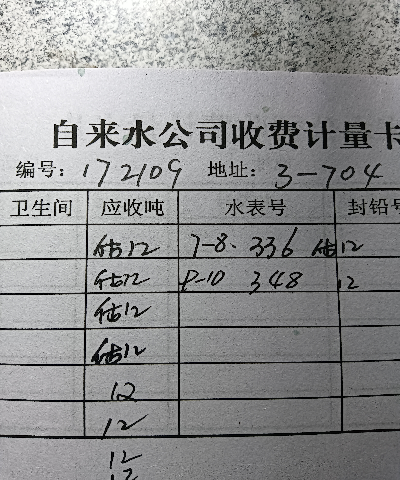 自来水公司收费计量卡
编号: 172109 地址: 3-704
卫生间 应收吨 水表号 封铅号
估12 7-8. 336 估12
估12 9-10 348 12
估12
估12
12
12
12
12